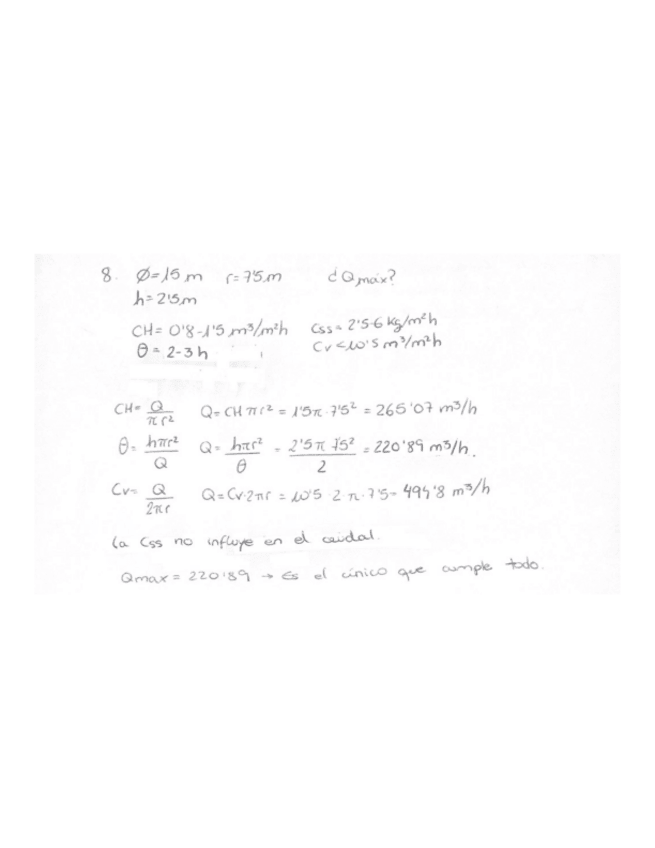 8. Ø=15 m r=7'5m ¿Qmáx?
h=2'5m
CH= 0'8-1'5 m³/m²h Css= 2'5-6 kg/m²h
θ= 2-3h Cv<10'5 m³/m²h
CH= Q/πr² Q= CH πr² = 1'5π·7'5² = 265'07 m³/h
θ= hπr²/Q Q= hπr²/θ = 2'5π 7'5²/2 = 220'89 m³/h.
Cv= Q/2πr Q=Cv·2πr = 10'5 2 π·7'5= 494'8 m³/h
la Css no influye en el caudal.
Qmax = 220'89 → Es el único que cumple todo.